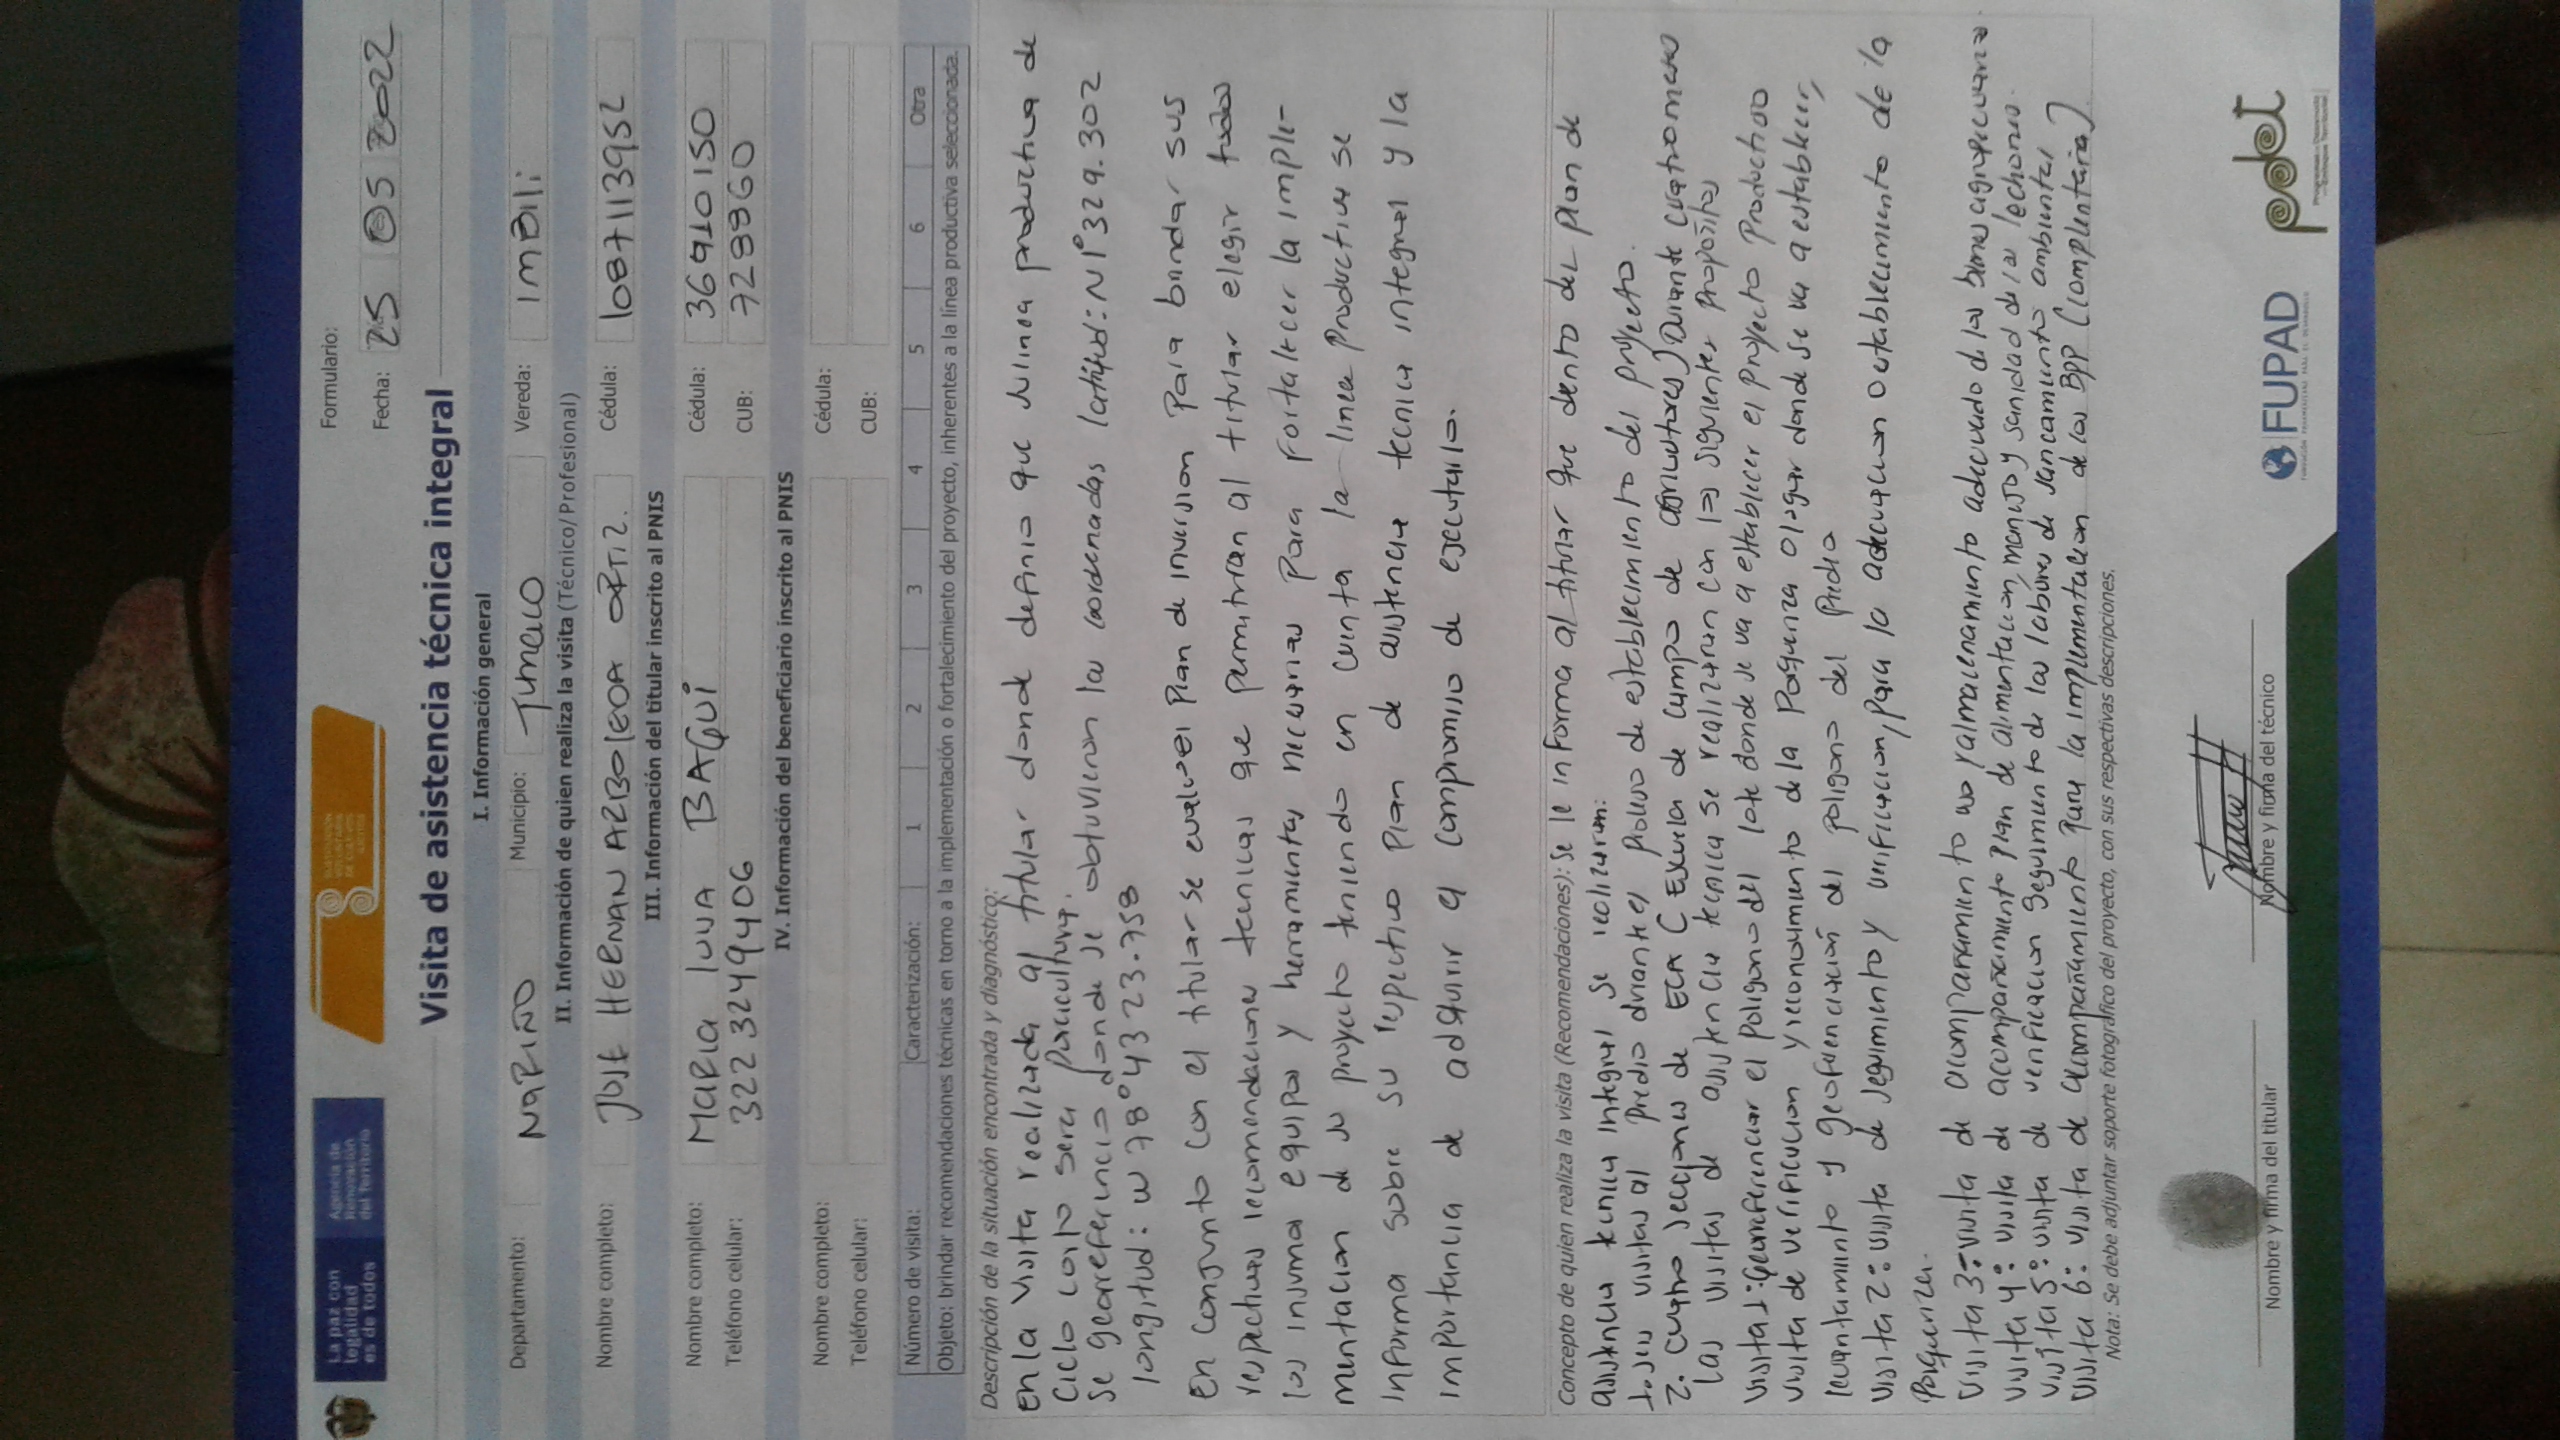 La paz con
legalidad
es de todos
Agencia de
Renovación
del Territorio
Formulario:
Fecha: 25 05 2022
Visita de asistencia técnica integral
I. Información general
Departamento: NARIÑO Municipio: TUMACO Vereda: IMBILI
II. Información de quien realiza la visita (Técnico/Profesional)
Nombre completo: JOSE HERNAN ARBOLEDA ORTIZ. Cédula: 1087113952
III. Información del titular inscrito al PNIS
Nombre completo: MARIA LUISA BAQUI Cédula: 36910150
Teléfono celular: 3223249406 CUB:
IV. Información del beneficiario inscrito al PNIS
Nombre completo: Cédula:
Teléfono celular: CUB:
Número de visita: Caracterización: 1 2 3 4 5 6 Otra
Objeto: brindar recomendaciones técnicas en torno a la implementación o fortalecimiento del proyecto, inherentes a la línea productiva seleccionada.
Descripción de la situación encontrada y diagnóstico:
En la visita realizada al titular donde definio que su linea productiva de
ciclo corto sera porcicultura.
Se georeferencio donde se obtuvieron las coordenadas latitud: N1°329.302
longitud: W78°4323.758
En conjunto con el titular se evaluo el plan de inversion para brindar sus
respectivas recomendaciones tecnicas que permitiran al titular elegir todos
los insumos equipos y herramientas necesarias para fortalecer la imple-
mentacion de su proyecto teniendo en cuenta la linea productiva se
informa sobre su respectivo plan de asistencia tecnica integral y la
importancia de adquirir el compromiso de ejecutarlo.
Concepto de quien realiza la visita (Recomendaciones): se le informa al titular que dentro del plan de
asistencia tecnica integral se realizaran:
visitas al predio durante el proceso de establecimiento del proyecto.
2. cuatro secciones de ECA (Escuela de campo de agricultores) Durante cuatro meses
Las visitas de asistencia tecnica se realizaran con los siguientes propositos
visita 1: Georeferenciar el poligono del lote donde se va a establecer el proyecto Productivo
visita de verificacion y reconocimiento de la Porqueriza o lugar donde se va a establecer,
levantamiento y georeferenciacion del poligono del predio
visita 2: visita de seguimiento y verificacion, para la adecuacion o establecimiento de la
Porqueriza.
visita 3: visita de acompañamiento uso y almacenamiento adecuado de los bienes agropecuarios.
visita 4: visita de acompañamiento plan de alimentacion, manejo y sanidad de los lechones.
visita 5: visita de verificacion seguimiento de las labores de saneamiento ambiental
visita 6: visita de acompañamiento para la implementacion de las BPP (complementaria)
Nota: Se debe adjuntar soporte fotográfico del proyecto, con sus respectivas descripciones.
Nombre y firma del titular
Nombre y firma del técnico
FUPAD
pdet